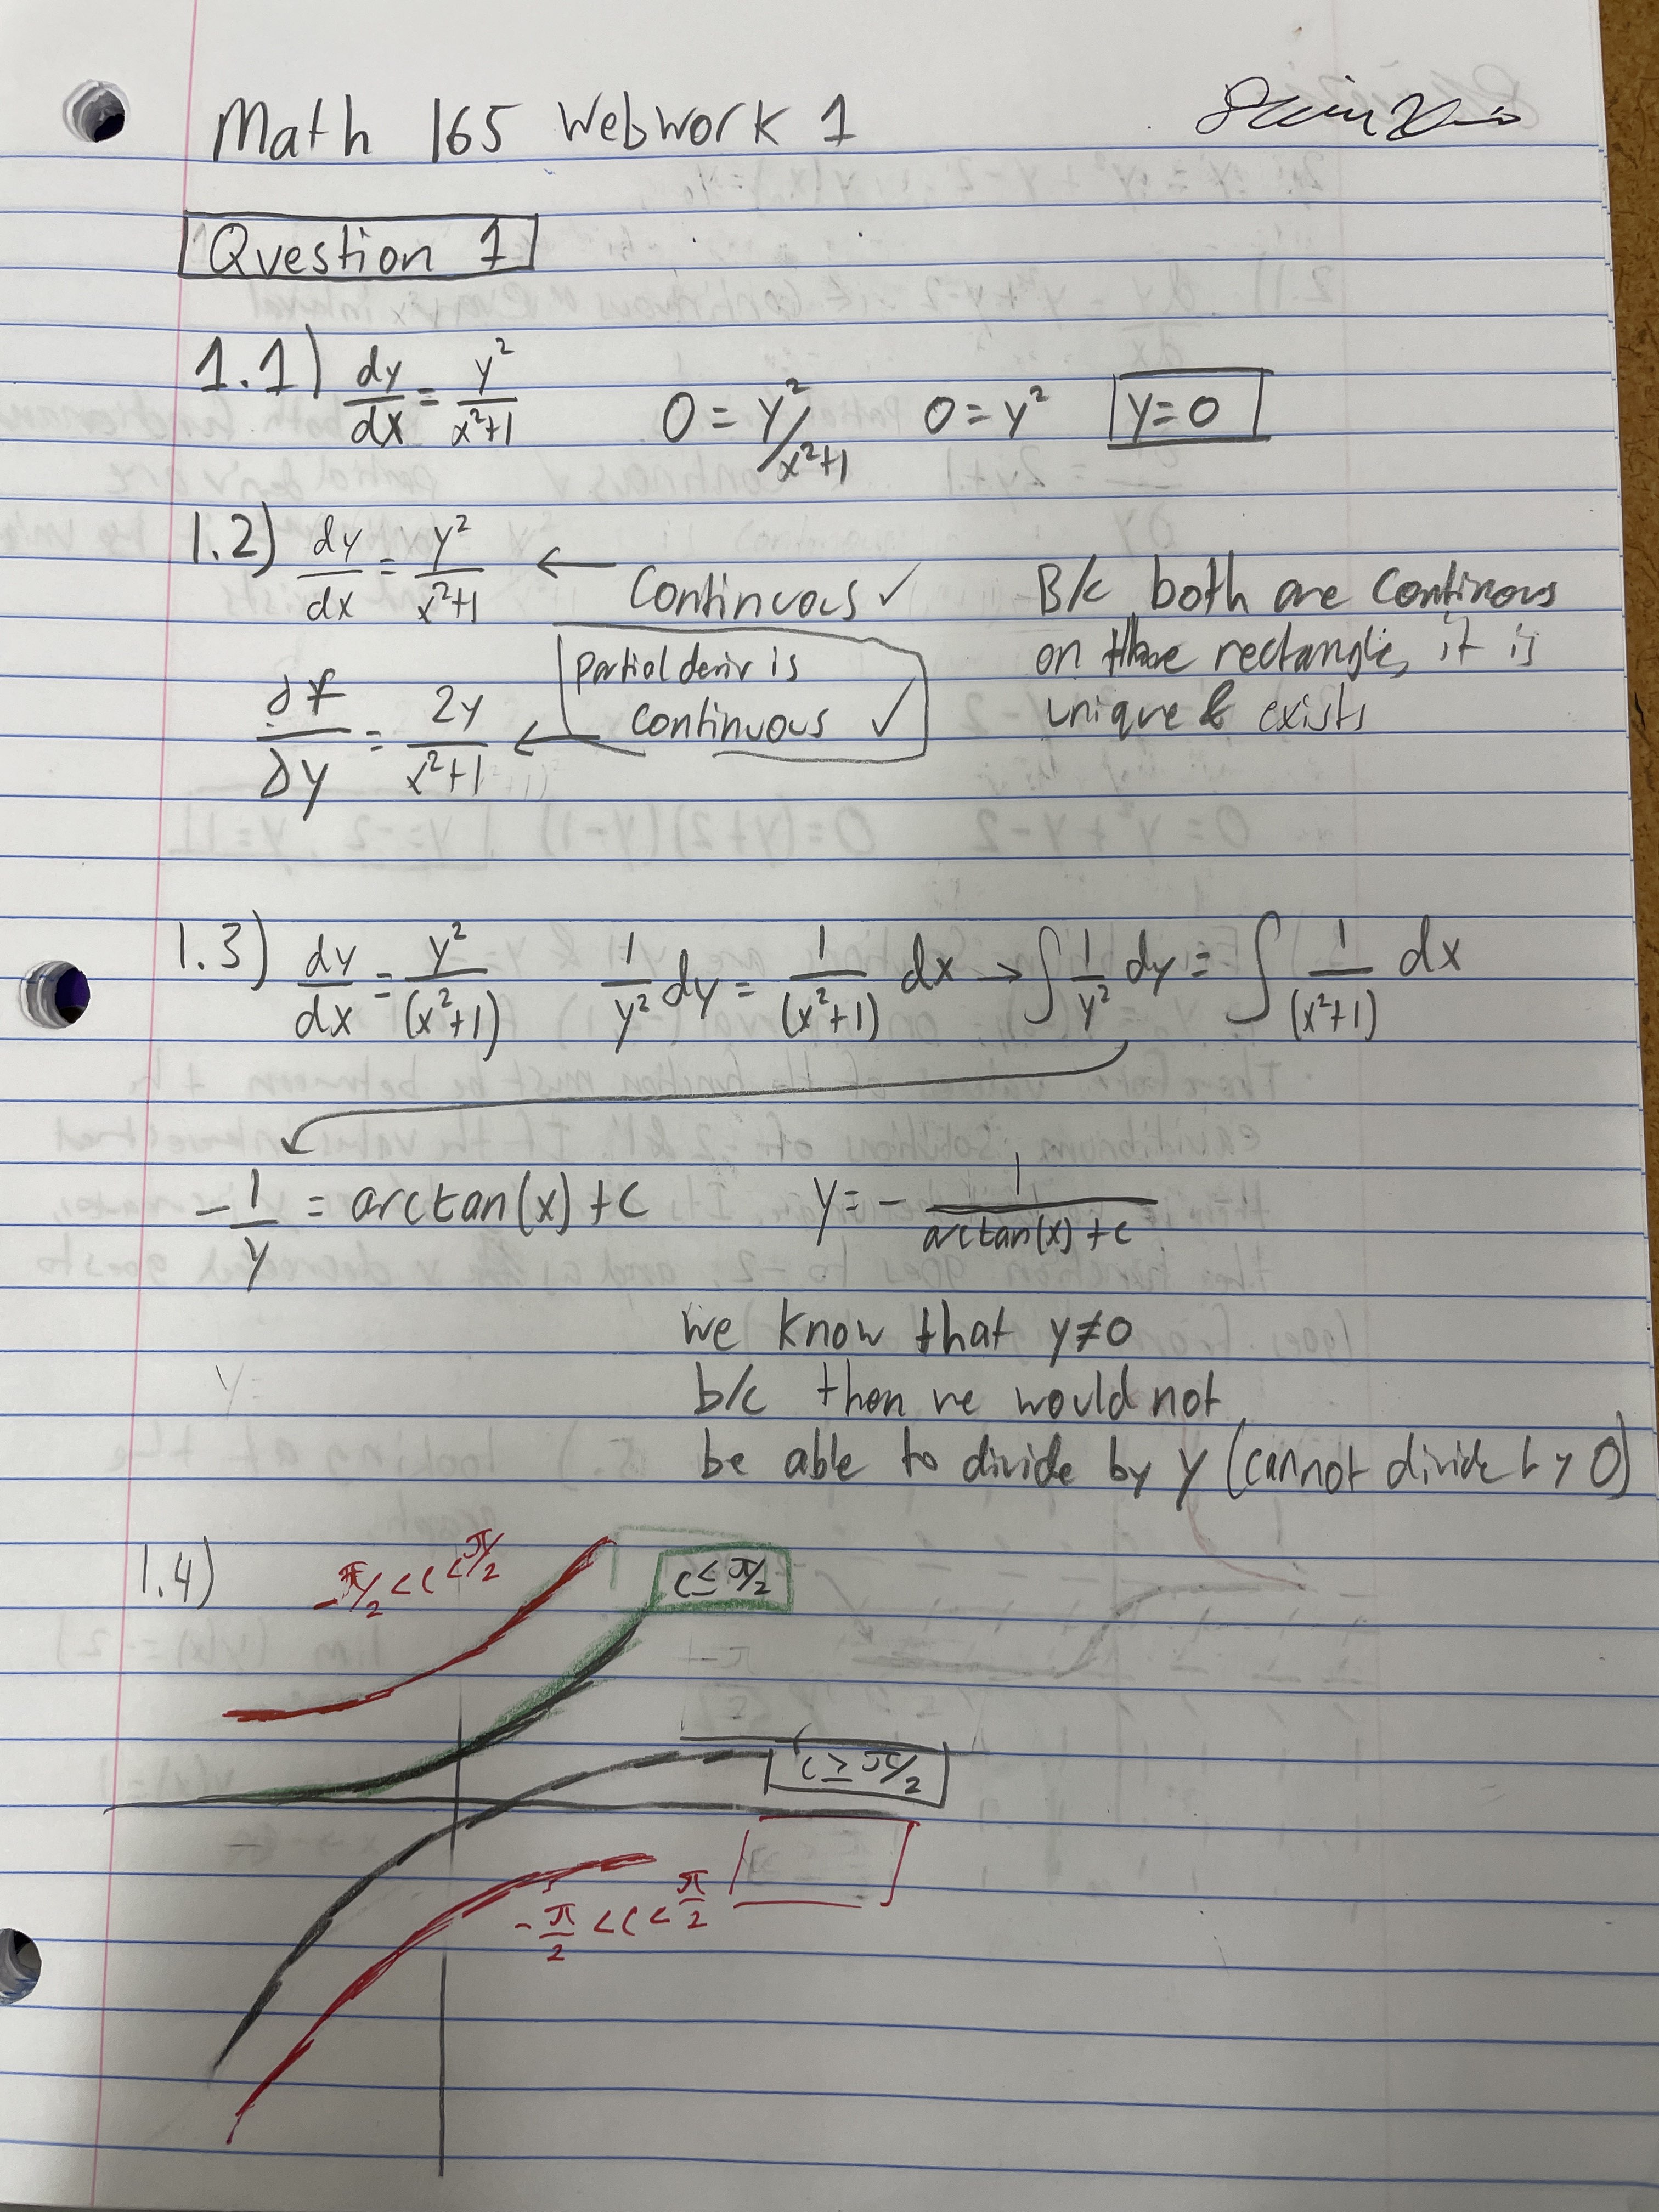 Math 165 Webwork 1
Question 1
1.1) dy/dx = y²/x²+1 0 = y²/x²+1 0 = y² y=0
1.2) dy/dx = y²/x²+1 ← Continuous ✓
∂f/∂y = 2y/x²+1 ← partial deriv is
continuous ✓
B/c both are continous
on the rectangle, it is
unique & exists
1.3) dy/dx = y²/(x²+1) 1/y² dy = 1/(x²+1) dx → ∫ 1/y² dy = ∫ 1/(x²+1) dx
-1/y = arctan(x) + c y = - 1/arctan(x) + c
we know that y≠0
b/c then we would not
be able to divide by y (cannot divide by 0)
1.4) -π/2 < c < π/2
c ≤ π/2
c ≥ π/2
-π/2 < c < π/2